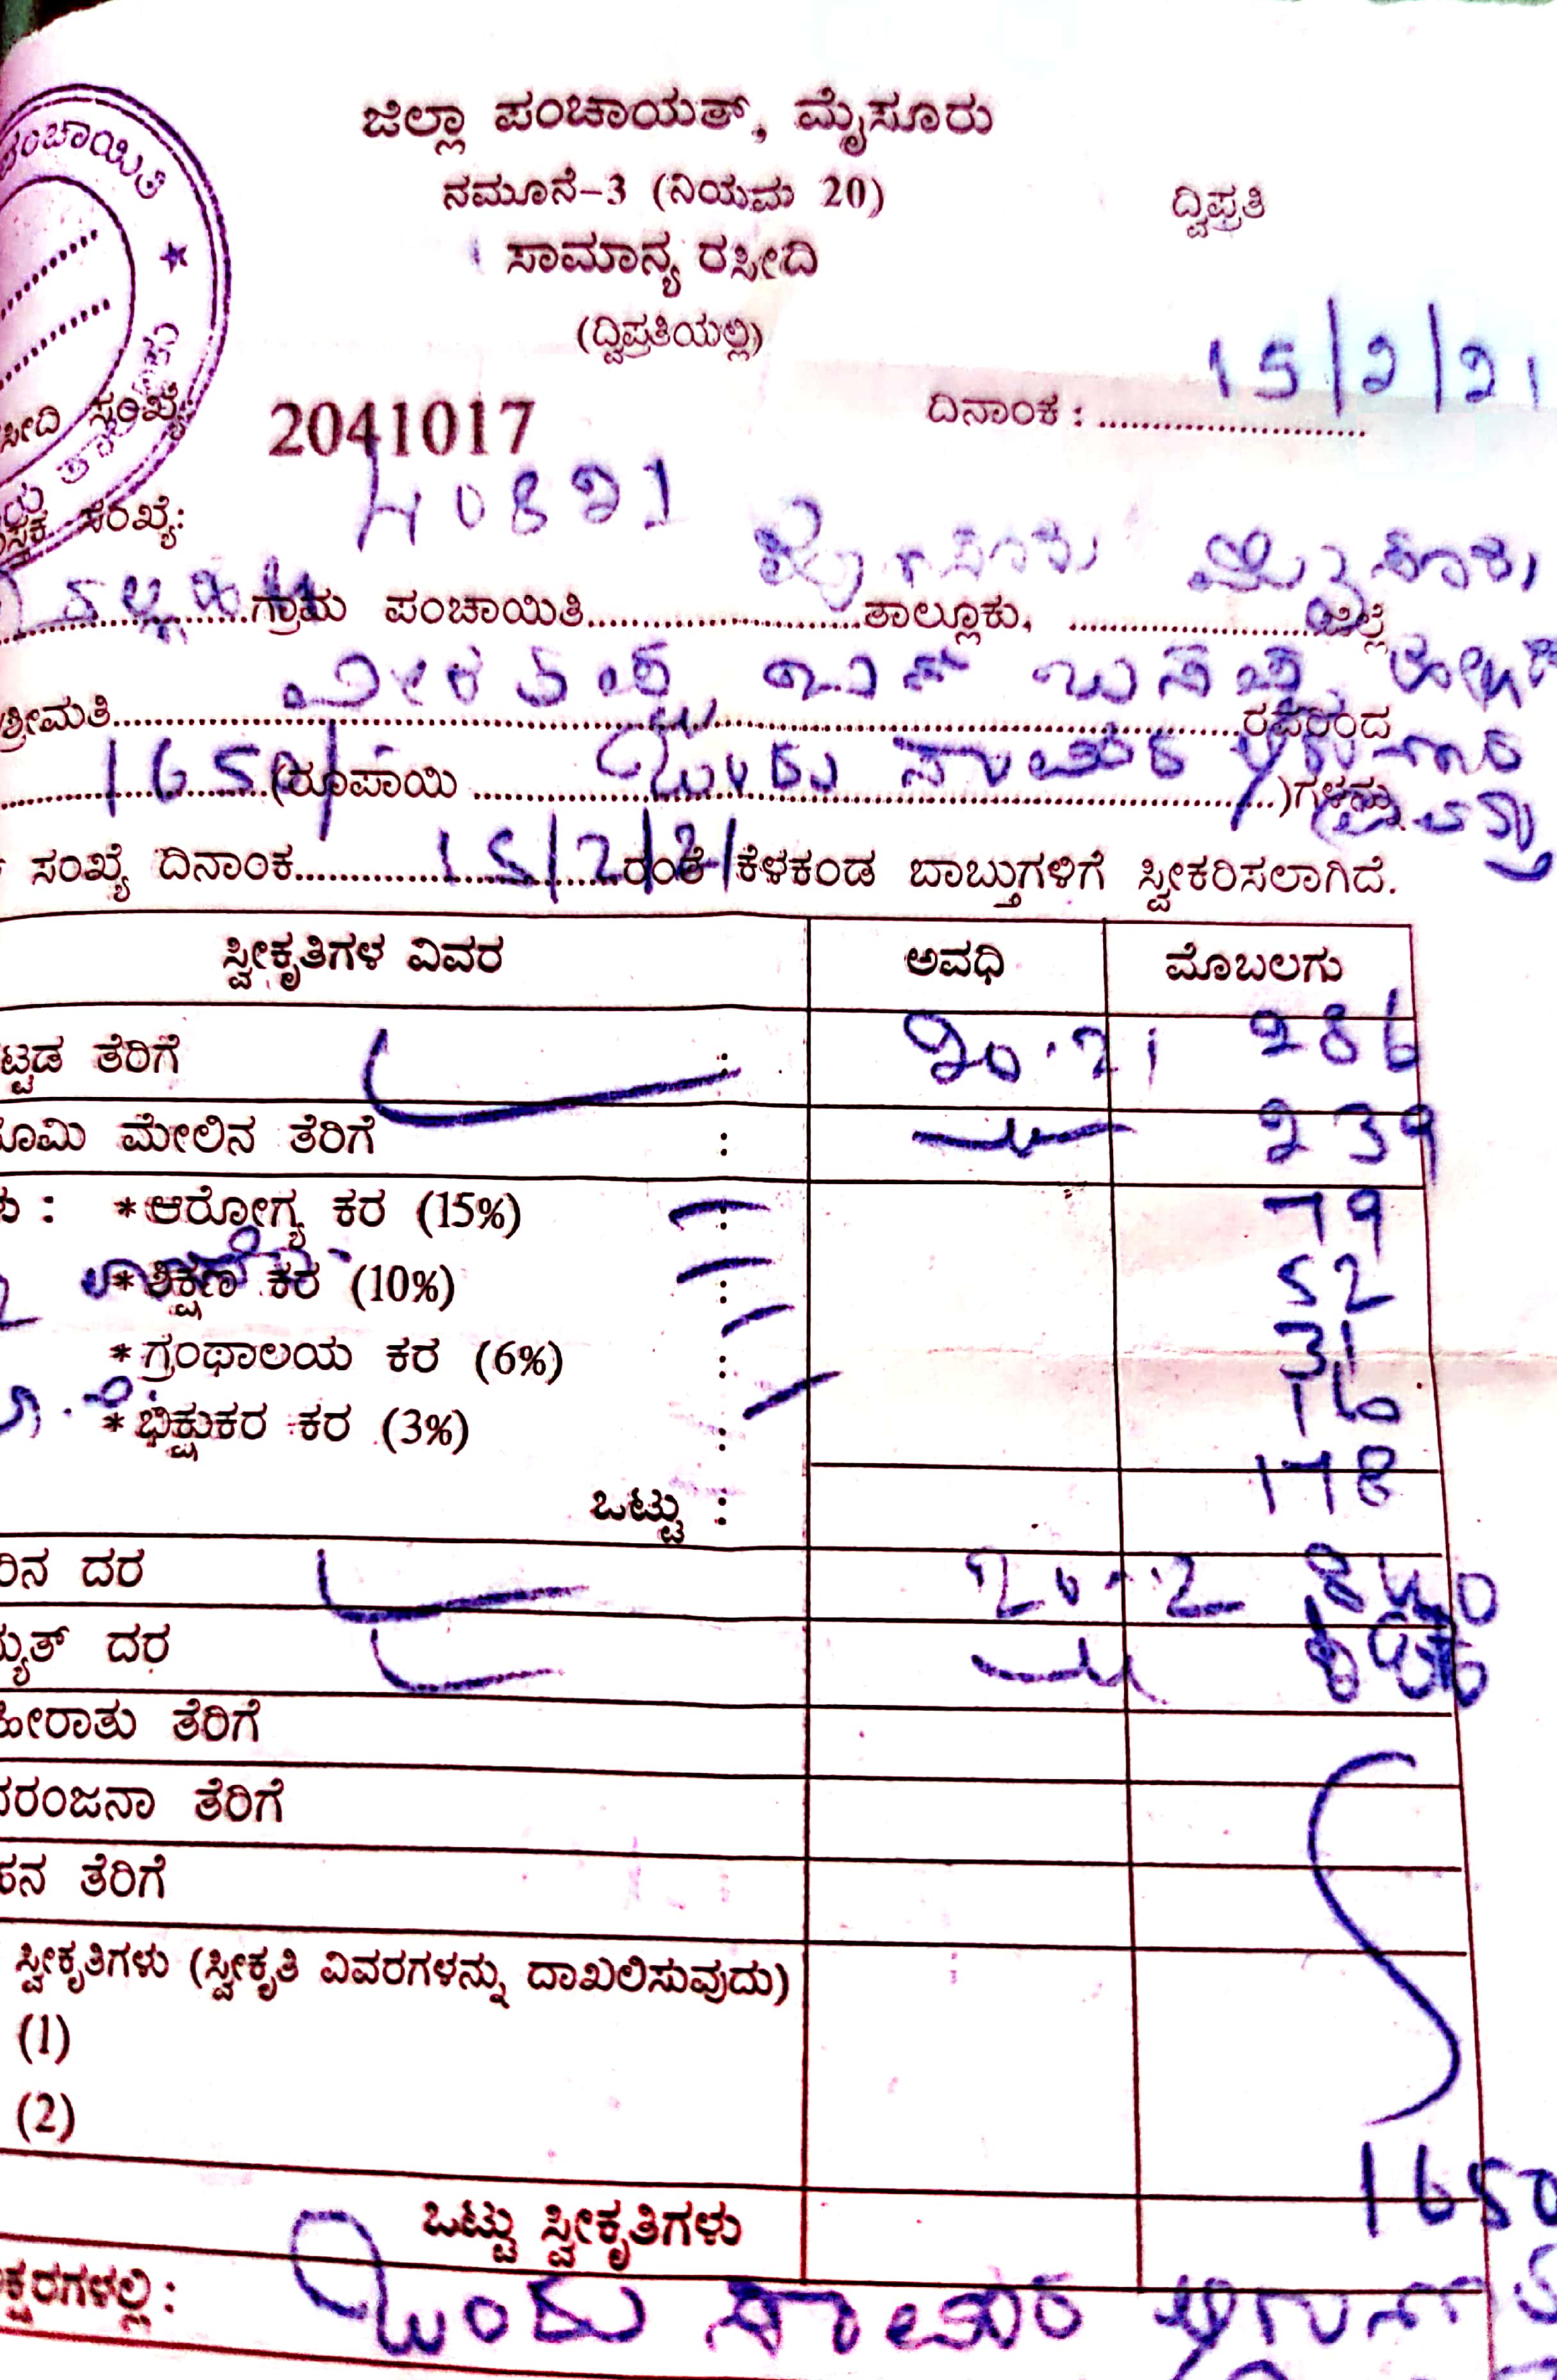 ಜಿಲ್ಲಾ ಪಂಚಾಯತ್, ಮೈಸೂರು
ನಮೂನೆ-3 (ನಿಯಮ 20)
ದ್ವಿಪ್ರತಿ
ಸಾಮಾನ್ಯ ರಸೀದಿ
(ದ್ವಿಪ್ರತಿಯಲ್ಲಿ)
ಪಂಚಾಯಿತಿ
ಸೀದಿ ಸಂಖ್ಯೆ 2041017 ದಿನಾಂಕ : 15/2/21
ಸ್ತಕ ಸಂಖ್ಯೆ: 40821
ಗ್ರಾಮ ಪಂಚಾಯಿತಿ ತಾಲ್ಲೂಕು, ಮೈಸೂರು ಜಿಲ್ಲೆ
ಶ್ರೀಮತಿ ರವರಿಂದ
1650/ (ರೂಪಾಯಿ ಒಂದು ಸಾವಿರ )ಗಳನ್ನು
ಸಂಖ್ಯೆ ದಿನಾಂಕ 15/2/21 ರಂತೆ ಕೆಳಕಂಡ ಬಾಬ್ತುಗಳಿಗೆ ಸ್ವೀಕರಿಸಲಾಗಿದೆ.
ಸ್ವೀಕೃತಿಗಳ ವಿವರ ಅವಧಿ ಮೊಬಲಗು
ಟ್ಟಡ ತೆರಿಗೆ : 20-21 286
ೂಮಿ ಮೇಲಿನ ತೆರಿಗೆ : 239
ು : *ಆರೋಗ್ಯ ಕರ (15%) : 79
*ಶಿಕ್ಷಣ ಕರ (10%) : 52
*ಗ್ರಂಥಾಲಯ ಕರ (6%) : 31
*ಭಿಕ್ಷುಕರ ಕರ (3%) : 16
ಒಟ್ಟು : 178
ರಿನ ದರ 840
ದ್ಯುತ್ ದರ
ಹೀರಾತು ತೆರಿಗೆ
ನರಂಜನಾ ತೆರಿಗೆ
ಹನ ತೆರಿಗೆ
ಸ್ವೀಕೃತಿಗಳು (ಸ್ವೀಕೃತಿ ವಿವರಗಳನ್ನು ದಾಖಲಿಸುವುದು)
(1)
(2)
ಒಟ್ಟು ಸ್ವೀಕೃತಿಗಳು 1650
ಕ್ಷರಗಳಲ್ಲಿ : ಒಂದು ಸಾವಿರ